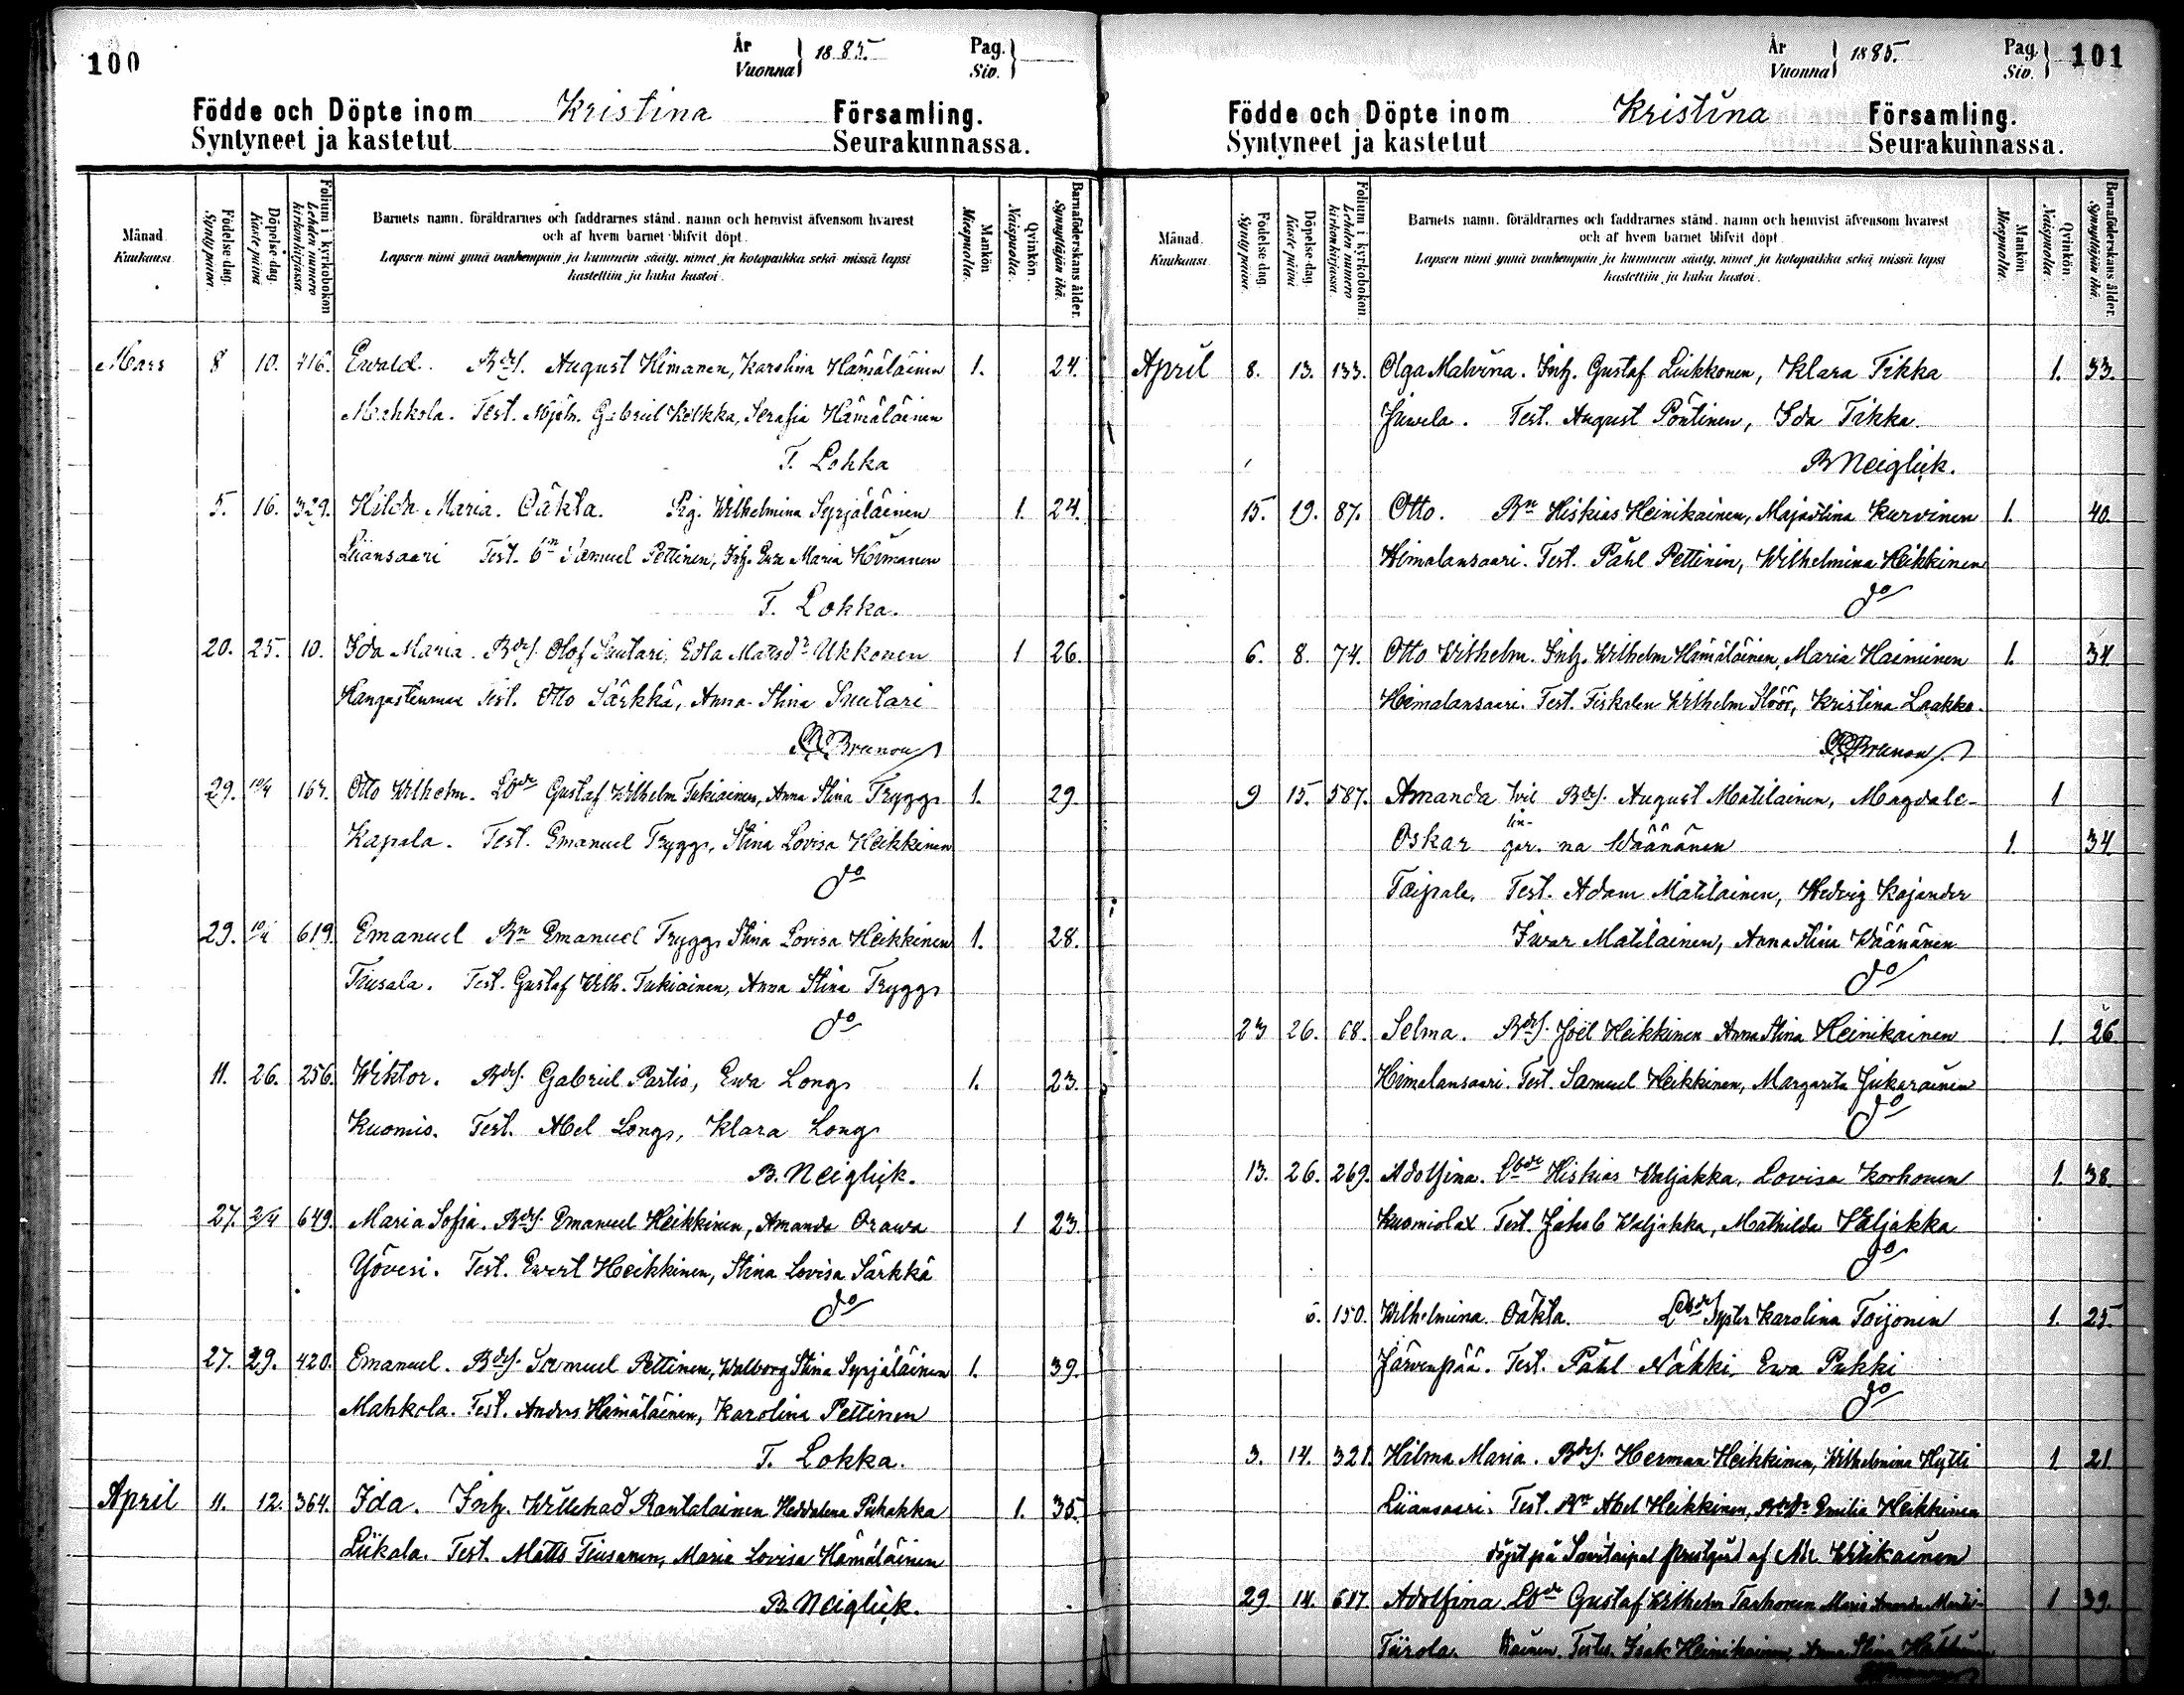 100
År 1885. Pag.
Vuonna Siv.
Födde och Döpte inom Kristina Församling.
Syntyneet ja kastetut Seurakunnassa.
Månad. Kuukausi.
Födelse-dag. Syntypäivä.
Döpelse-dag. Kastepäivä
Folium i kyrkoboken Lehden numero kirkonkirjassa.
Barnets namn, föräldrarnes och faddrarnes stånd, namn och hemvist äfvensom hvarest
och af hvem barnet blifvit döpt.
Lapsen nimi ynnä vanhempain ja kummein sääty, nimet ja kotopaikka sekä missä lapsi
kastettiin ja kuka kastoi.
Mankön Miespuolta.
Qvinkön. Naispuolta.
Barnaföderskans ålder. Synnyttäjän ikä.
Mars 8 10. 416. Ewald. Bdes. August Himanen, Karolina Hämäläinen 1. 24.
Mahkola. Test. Mjöln. Gabriel Kelkka, Serafia Hämäläinen
T. Lokka
5. 16. 329. Hilda Maria. Oäkta. Pig. Wilhelmina Syrjäläinen 1. 24.
Liiansaari Test. Bn Samuel Pettinen, Inh. Ewa Maria Himanen
T. Lokka.
20. 25. 10. Ida Maria. Bds. Olof Suutari, Edla Matsdr Ukkonen 1 26.
Test. Otto Särkkä, Anna Stina Suutari
Brunou
29. 10/4 Otto Wilhelm. Lbde Gustaf Wilhelm Tukiainen, Anna Stina Trygg 1. 29
Kapala. Test. Emanuel Trygg, Stina Lovisa Heikkinen
do
29. 10/4 619. Emanuel Bn Emanuel Trygg, Stina Lovisa Heikkinen 1. 28.
Tiusala. Test. Gustaf Wilh. Tukiainen, Anna Stina Trygg
do
11. 26. 256. Wiktor. Bds. Gabriel Partio, Ewa Long 1. 23.
Kuomio. Test. Abel Long, Klara Long
B. Neiglick.
27. 2/4 649. Maria Sofia. Bds. Emanuel Heikkinen, Amanda Orawa 1 23.
Yövesi. Test. Evert Heikkinen, Stina Lovisa Särkkä
do
27. 29. 420. Emanuel. Bds. Samuel Pettinen, Walborg Stina Syrjäläinen 1. 39.
Mahkola. Test. Anders Hämäläinen, Karolina Pettinen
T. Lokka.
April 11. 12. 364. Ida. Inh. Willehad Rantalainen Heddalena Puhakka 1. 35.
Liikala. Test. Matts Tiusanen, Maria Lovisa Hämäläinen
B. Neiglick.
År 1885. Pag. 101
Vuonna Siv.
Födde och Döpte inom Kristina Församling.
Syntyneet ja kastetut Seurakunnassa.
Månad. Kuukausi.
Födelse-dag. Syntypäivä.
Döpelse-dag. Kastepäivä
Folium i kyrkoboken Lehden numero kirkonkirjassa.
Barnets namn, föräldrarnes och faddrarnes stånd, namn och hemvist äfvensom hvarest
och af hvem barnet blifvit döpt.
Lapsen nimi ynnä vanhempain ja kummein sääty, nimet ja kotopaikka sekä missä lapsi
kastettiin ja kuka kastoi.
Mankön Miespuolta.
Qvinkön. Naispuolta.
Barnaföderskans ålder. Synnyttäjän ikä.
April 8. 13. 133. Olga Malvina. Inh. Gustaf Liukkonen, Klara Tikka 1. 33.
Test. August Pöntinen, Ida Tikka.
B Neiglick.
15. 19. 87. Otto. Bn Hiskias Heinikainen, Majastina Kurvinen 1. 40.
Himalansaari. Test. Påhl Pettinen, Wilhelmina Heikkinen
do
6. 8. 74. Otto Wilhelm. Inh. Wilhelm Hämäläinen, Maria Haiminen 1. 34
Himalansaari. Test. Fiskalen Wilhelm Stöör, Kristina Laakko.
Brunou
9 15. 587. Amanda tvil Bds. August Matilainen, Magdale- 1
Oskar lin- gar. na Wäänänen 1. 34.
Taipale. Test. Adam Matilainen, Hedvig Kajander
Ivar Matilainen, Anna Stina Wäänänen
do
23 26. 68. Selma. Bds. Joël Heikkinen Anna Stina Heinikainen 1. 26
Himalansaari. Test. Samuel Heikkinen, Margareta Jukarainen
do
13. 26. 269. Adolfina. Lbde Hiskias Waljakka, Lovisa Korhonen 1. 38.
Kuomiolax Test. Jakob Waljakka, Mathilda Waljakka
do
6. 150. Wilhelmina. Oäkta. Lbdes Syster Karolina Toijonen 1. 25.
Järvenpää. Test. Påhl Nähki, Ewa Pukki
do
3. 14. 321. Hilma Maria. Bds. Herman Heikkinen, Wilhelmina Hytti 1. 21.
Liiansaari. Test. Bn Abel Heikkinen, Emilia Heikkinen
döpt på Savitaipal prestgård af Wirikainen
29 14. 617. Adolfina Lbde Gustaf Wilhelm Tarhonen Maria Amanda 1 39.
Tiirola. Isak Heinikainen, Anna Stina